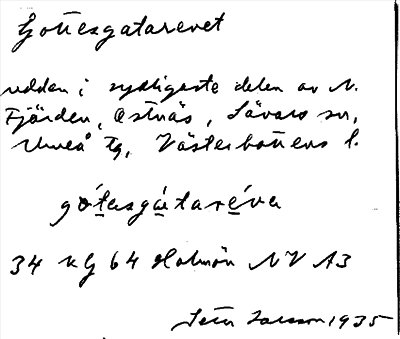 Gottesgatarevet
udden i sydligaste delen av N.
Fjärden, Ostnäs, Sävars sn,
Umeå tg, Västerbottens l.
gótasgátaréva
34 kg 64 Holmön NV A3
Larsson 1935